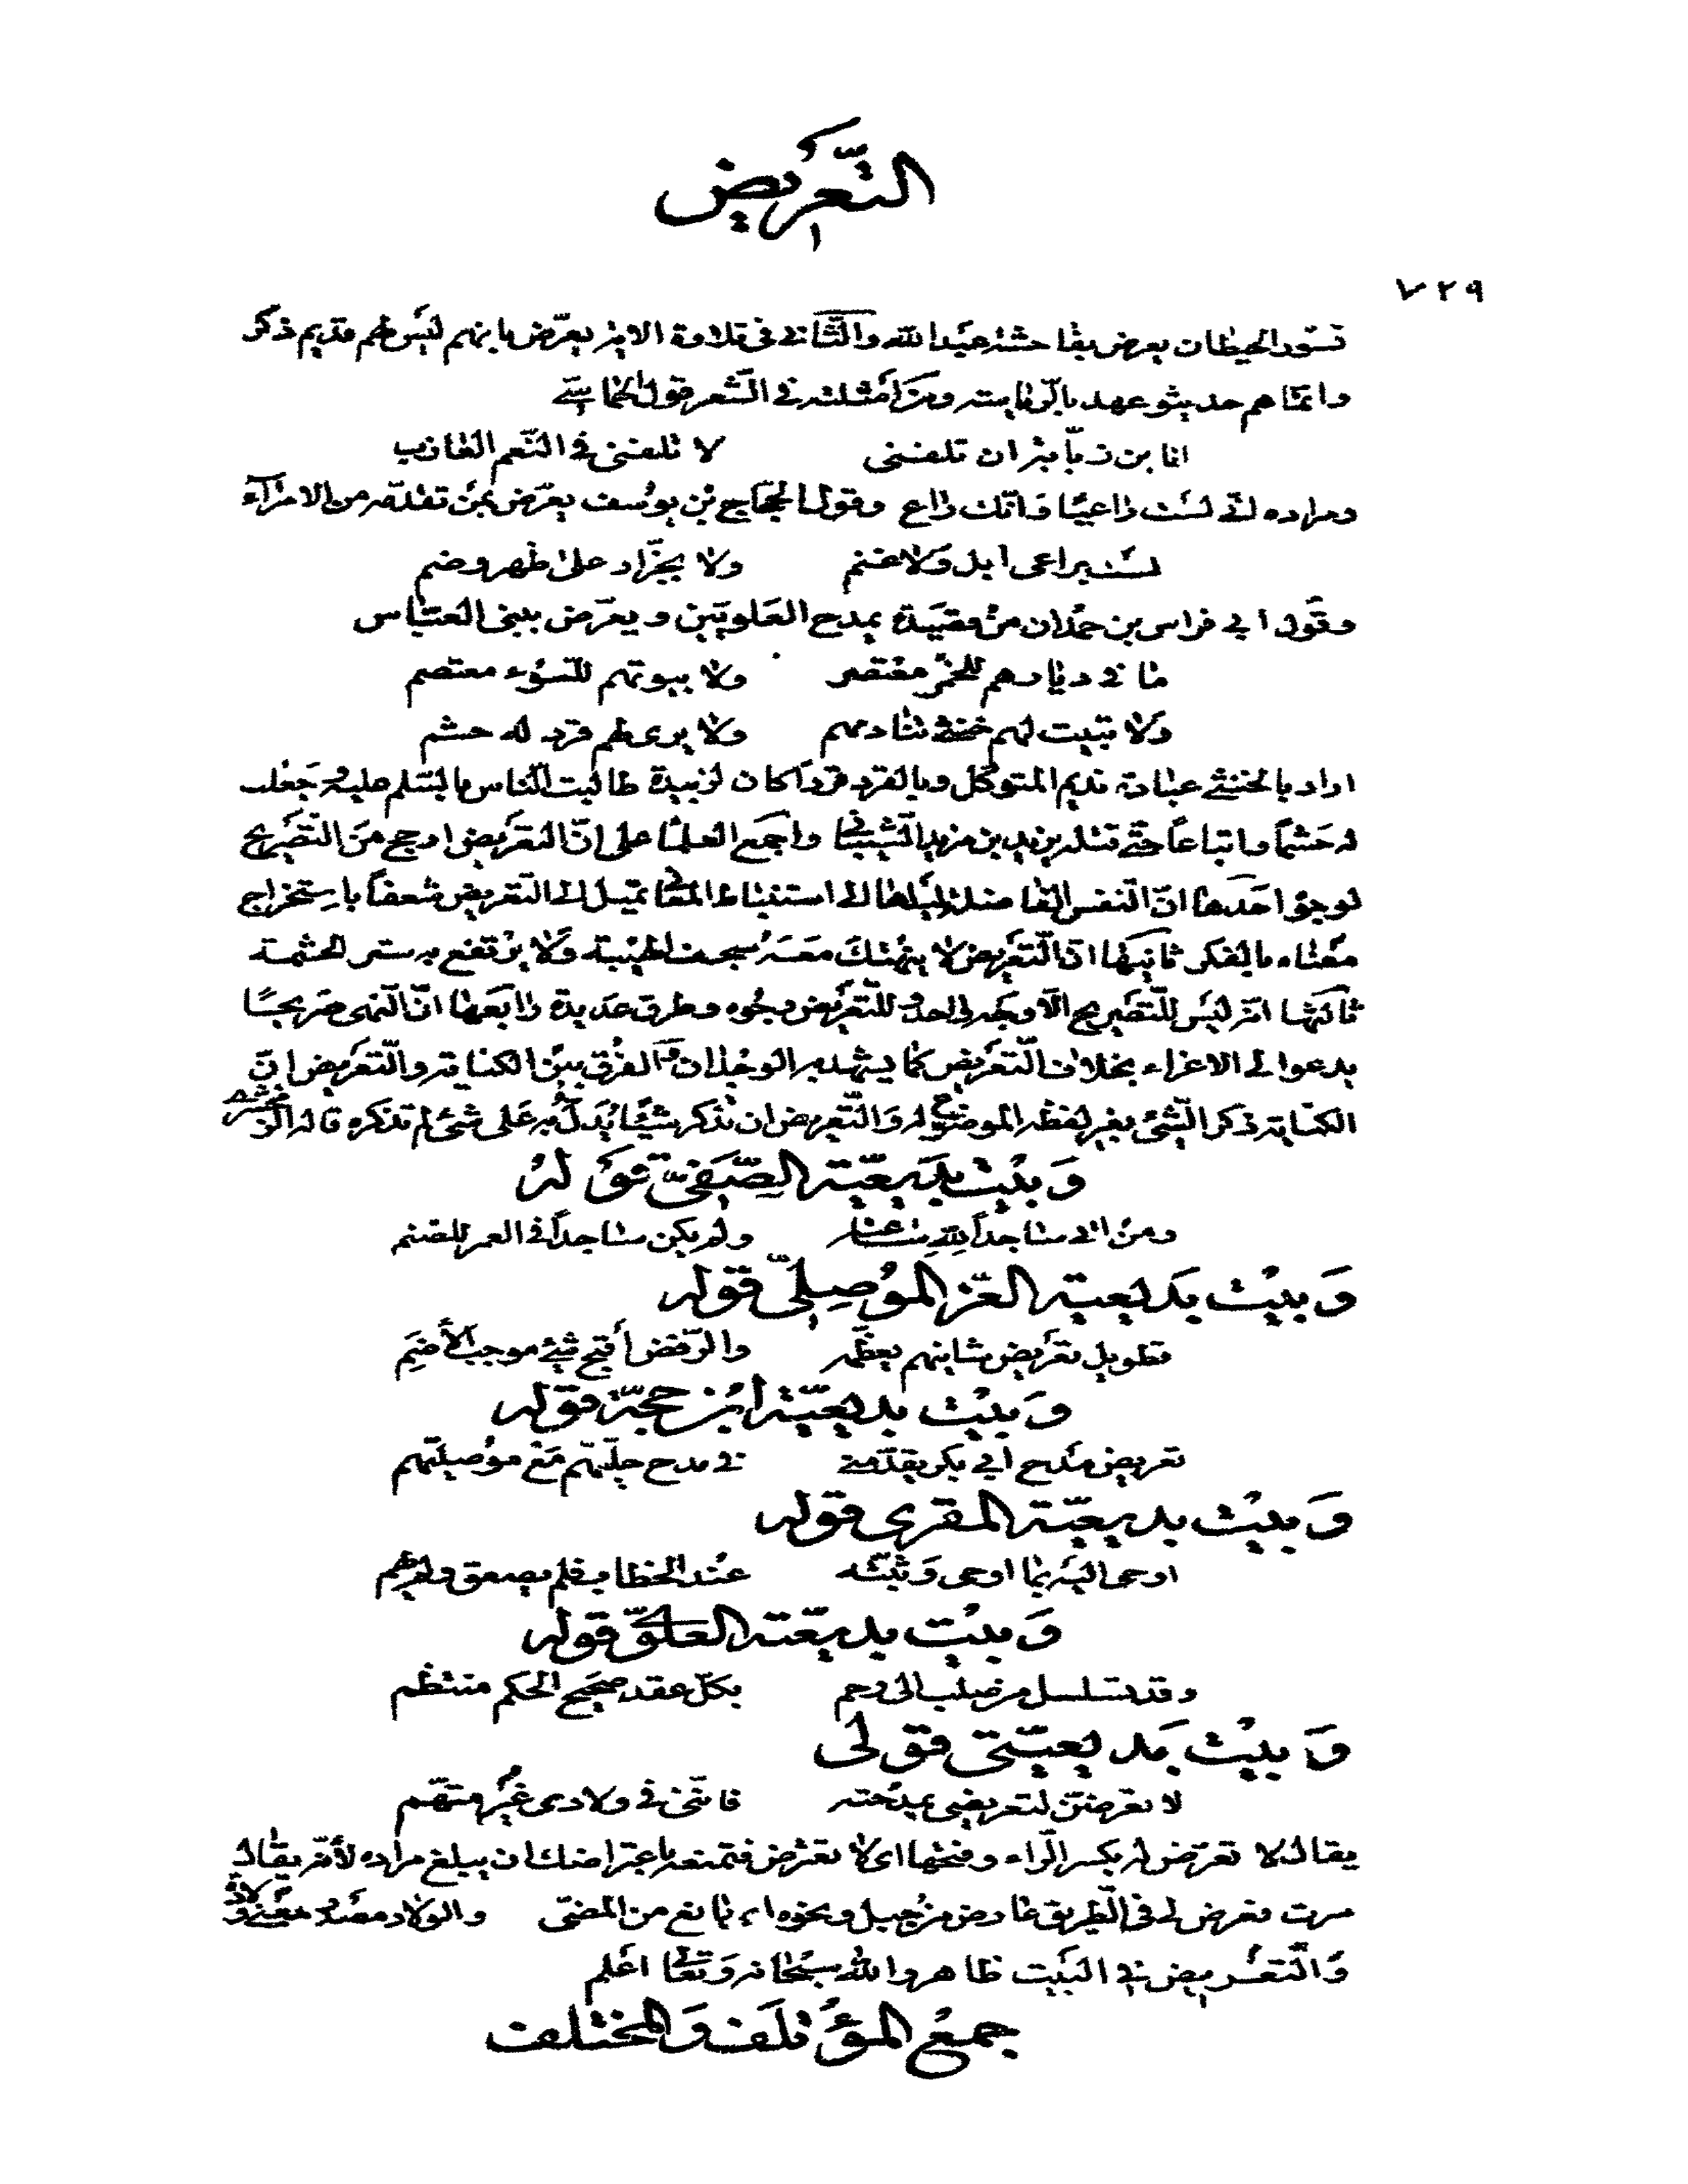 التعريض
٧٢٩
تسور الحيطان يعرض بفاحشة عبد الله والثاني في تلاوة الاية يعرّض بانهم ليس لهم قديم ذكر
وانما هم حديثو عهد بالرياسته ومن أمثلته في الشعر قول الحماسي
انا بن زيّابة ان تلقنى لا تلقنى في النّعم العازب
ومراده انى لست راعيا فانك راع وقول الحجاج بن يوسف يعرّض بمن تقدّمه من الامراء
لست براعى ابل ولا غنم ولا بجزّار على ظهر وضم
وقول ابي فراس بن حمدان من قصيدة يمدح العلويين ويعرّض ببنى العبّاس
ما في ديارهم للخمر معتصر ولا بيوتهم للسّوء معتصم
ولا تبيت لهم خنثى تنادمهم ولا يرى لهم قرد له حشم
اراد بالخنثى عبادة نديم المتوكل وبالقرد قرداً كان لزبيدة طالبت الناس بالتسلم عليه وجعلت
له حشماً واتباعاً حتى قتله يزيد بن مزيد الشيباني واجمع العلماء على انّ التعريض ارجح من التصريح
لوجوه احدها انّ النفس الفاضلة لميلها الى استنباط المعاني تميل الى التعريض شعفاً باستخراج
معناه بالفكر ثانيها انّ التّعريض لا ينهتك معه سجف الهيبة ولا يرتفع به ستر الحشمة
ثالثها انه ليس للتصريح الّا وجه واحد وللتّعريض وجوه وطرق عديدة رابعها انّ النهى صريحاً
يدعوا الى الاغراء بخلاف التّعريض كما يشهد به الوجدان والفرق بين الكناية والتّعريض انّ
الكناية ذكر الشّئ بغير لفظه الموضوع له والتّعريض ان تذكر شيئا يدلّ به على شئ لم تذكره قاله الزمخشرى
وَبيت بديعيّة الصّفىّ قوله
ومن اتى ساجداً لله ساعته ولم يكن ساجداً في العمر للصنم
وَبيت بديعية العزّ الموصلىّ قوله
تطويل تعريض شانيهم يعظّمهم والرّفض أقبح شئ موجب الأضم
وَبيت بديعيّة ابن حجّة قوله
تعريض مدح ابي بكر يقدّمنى في مدح حلّيهم مع موصليّهم
وَبيت بديعيّة المقرى قوله
اوحى اليه بما اوحى وثبّته عند الخطاب فلم يصعق ولم يهم
وَبيت بديعيّة العلوىّ قوله
وقد تسلسل من صلب الى رحم بكلّ عقد صحيح الحكم منتظم
وَبيت بديعيّتى قولى
لا تعرضنّ لتعريضى بمدحته فانّنى في ولادى غير متّهم
يقال لا تعرّض له بكسر الرّاء وفتحها اى لا تعترض فتمنعه باعتراضك ان يبلغ مراده لأنه يقال
سرت فعرض لى في الطريق عارض من جبل ونحوه اى مانع من المضىّ والولاد مصدر بمعنى الولادة
والتّعريض في البيت ظاهر والله سبحانه وتعالى اعلم
جمع المؤتلف والمختلف